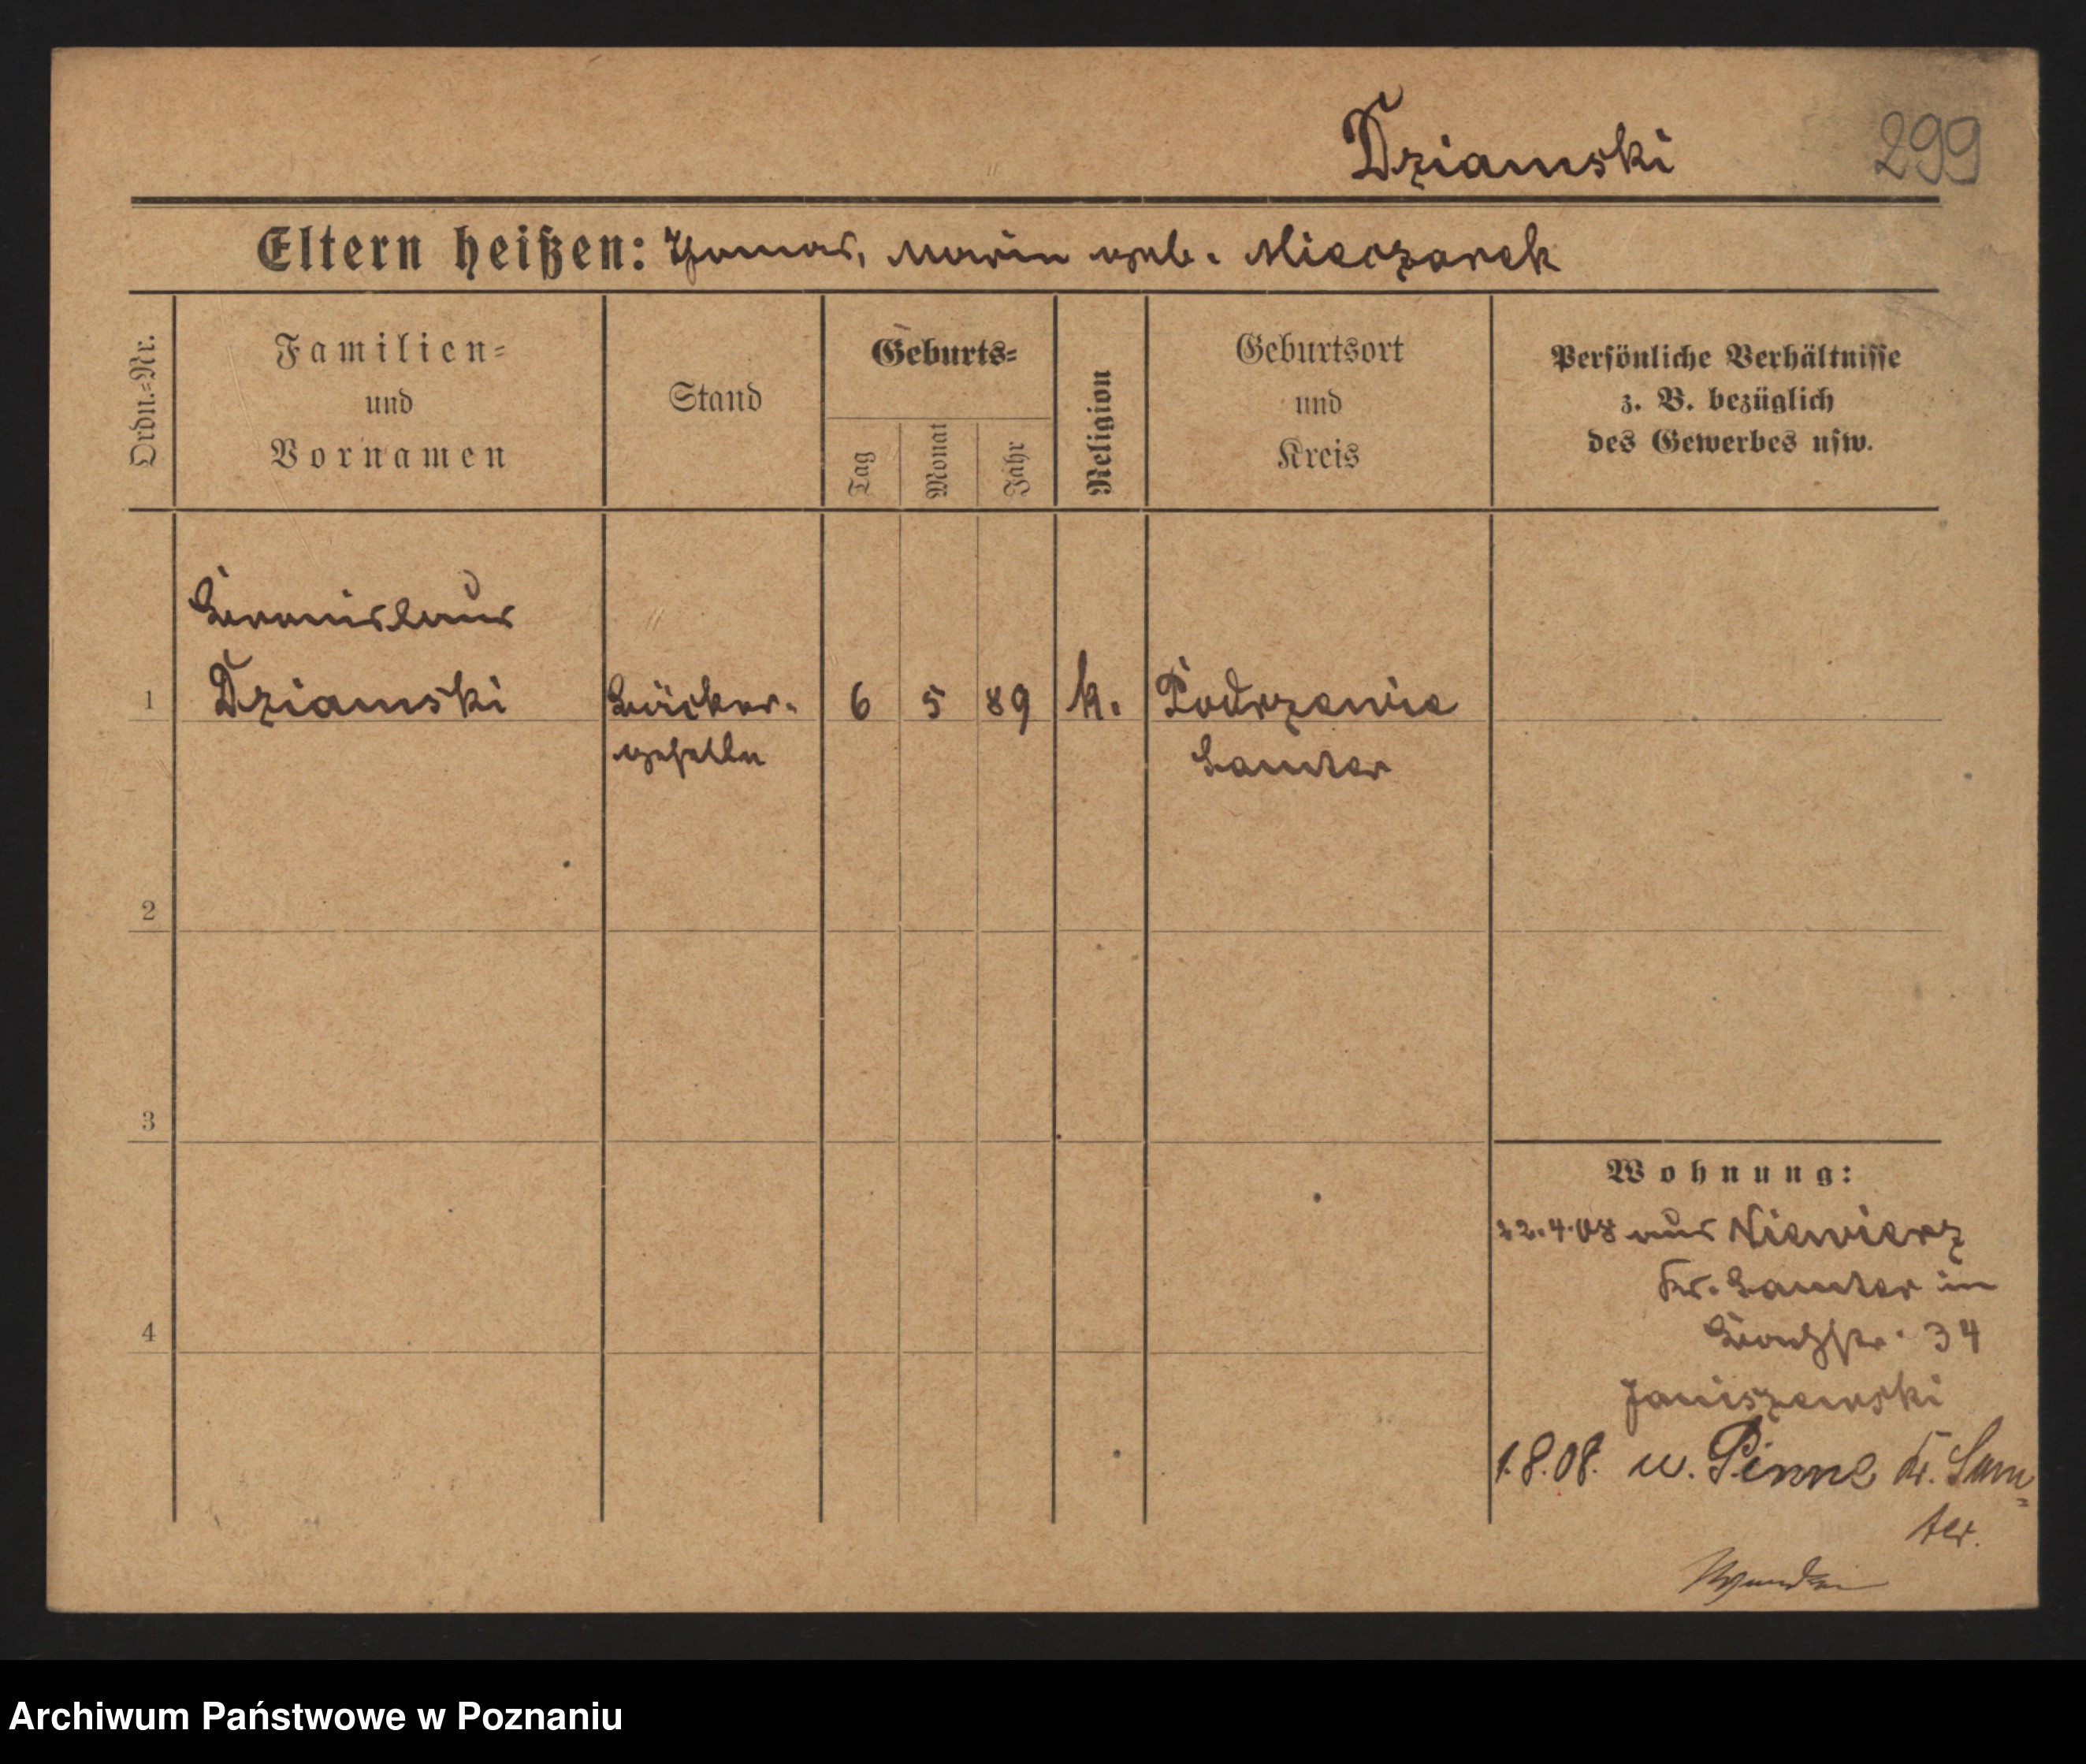 Dziamski 299
Eltern heißen: Thomas, Marie geb. Mieczarek
Ordn.=Nr.
Familien=
und
Vornamen
Stand
Geburts=
Tag
Monat
Jahr
Religion
Geburtsort
und
Kreis
Persönliche Verhältnisse
z. B. bezüglich
des Gewerbes usw.
Bronislaus
1 Dziamski Bäcker- 6 5 89 k. Podrzewie
geselle Samter
2
3
4
Wohnung:
22.4.08 aus Niewierz
Kr. Samter in
34
Janiszewski
1.8.08. n. Pinne Kr. Sam=
ter.
Archiwum Państwowe w Poznaniu